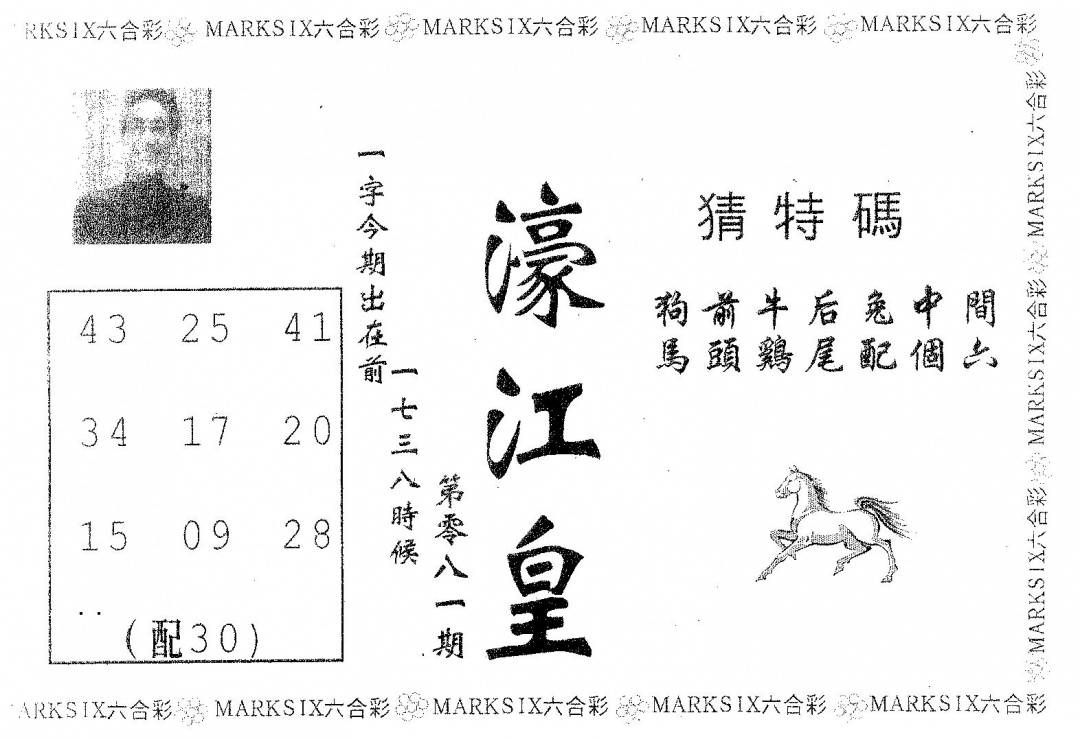 RKSIX六合彩 MARKSIX六合彩 MARKSIX六合彩 MARKSIX六合彩 MARKSIX六合彩
MARKSIX六合彩 MARKSIX六合彩 MARKSIX六合彩
猜特碼
狗前牛后兔中間
馬頭鷄尾配個六
濠江皇
第零八一期
一字今期出在前
一七三八時候
43 25 41
34 17 20
15 09 28
..
(配30)
ARKSIX六合彩 MARKSIX六合彩 MARKSIX六合彩 MARKSIX六合彩 MARKSIX六合彩